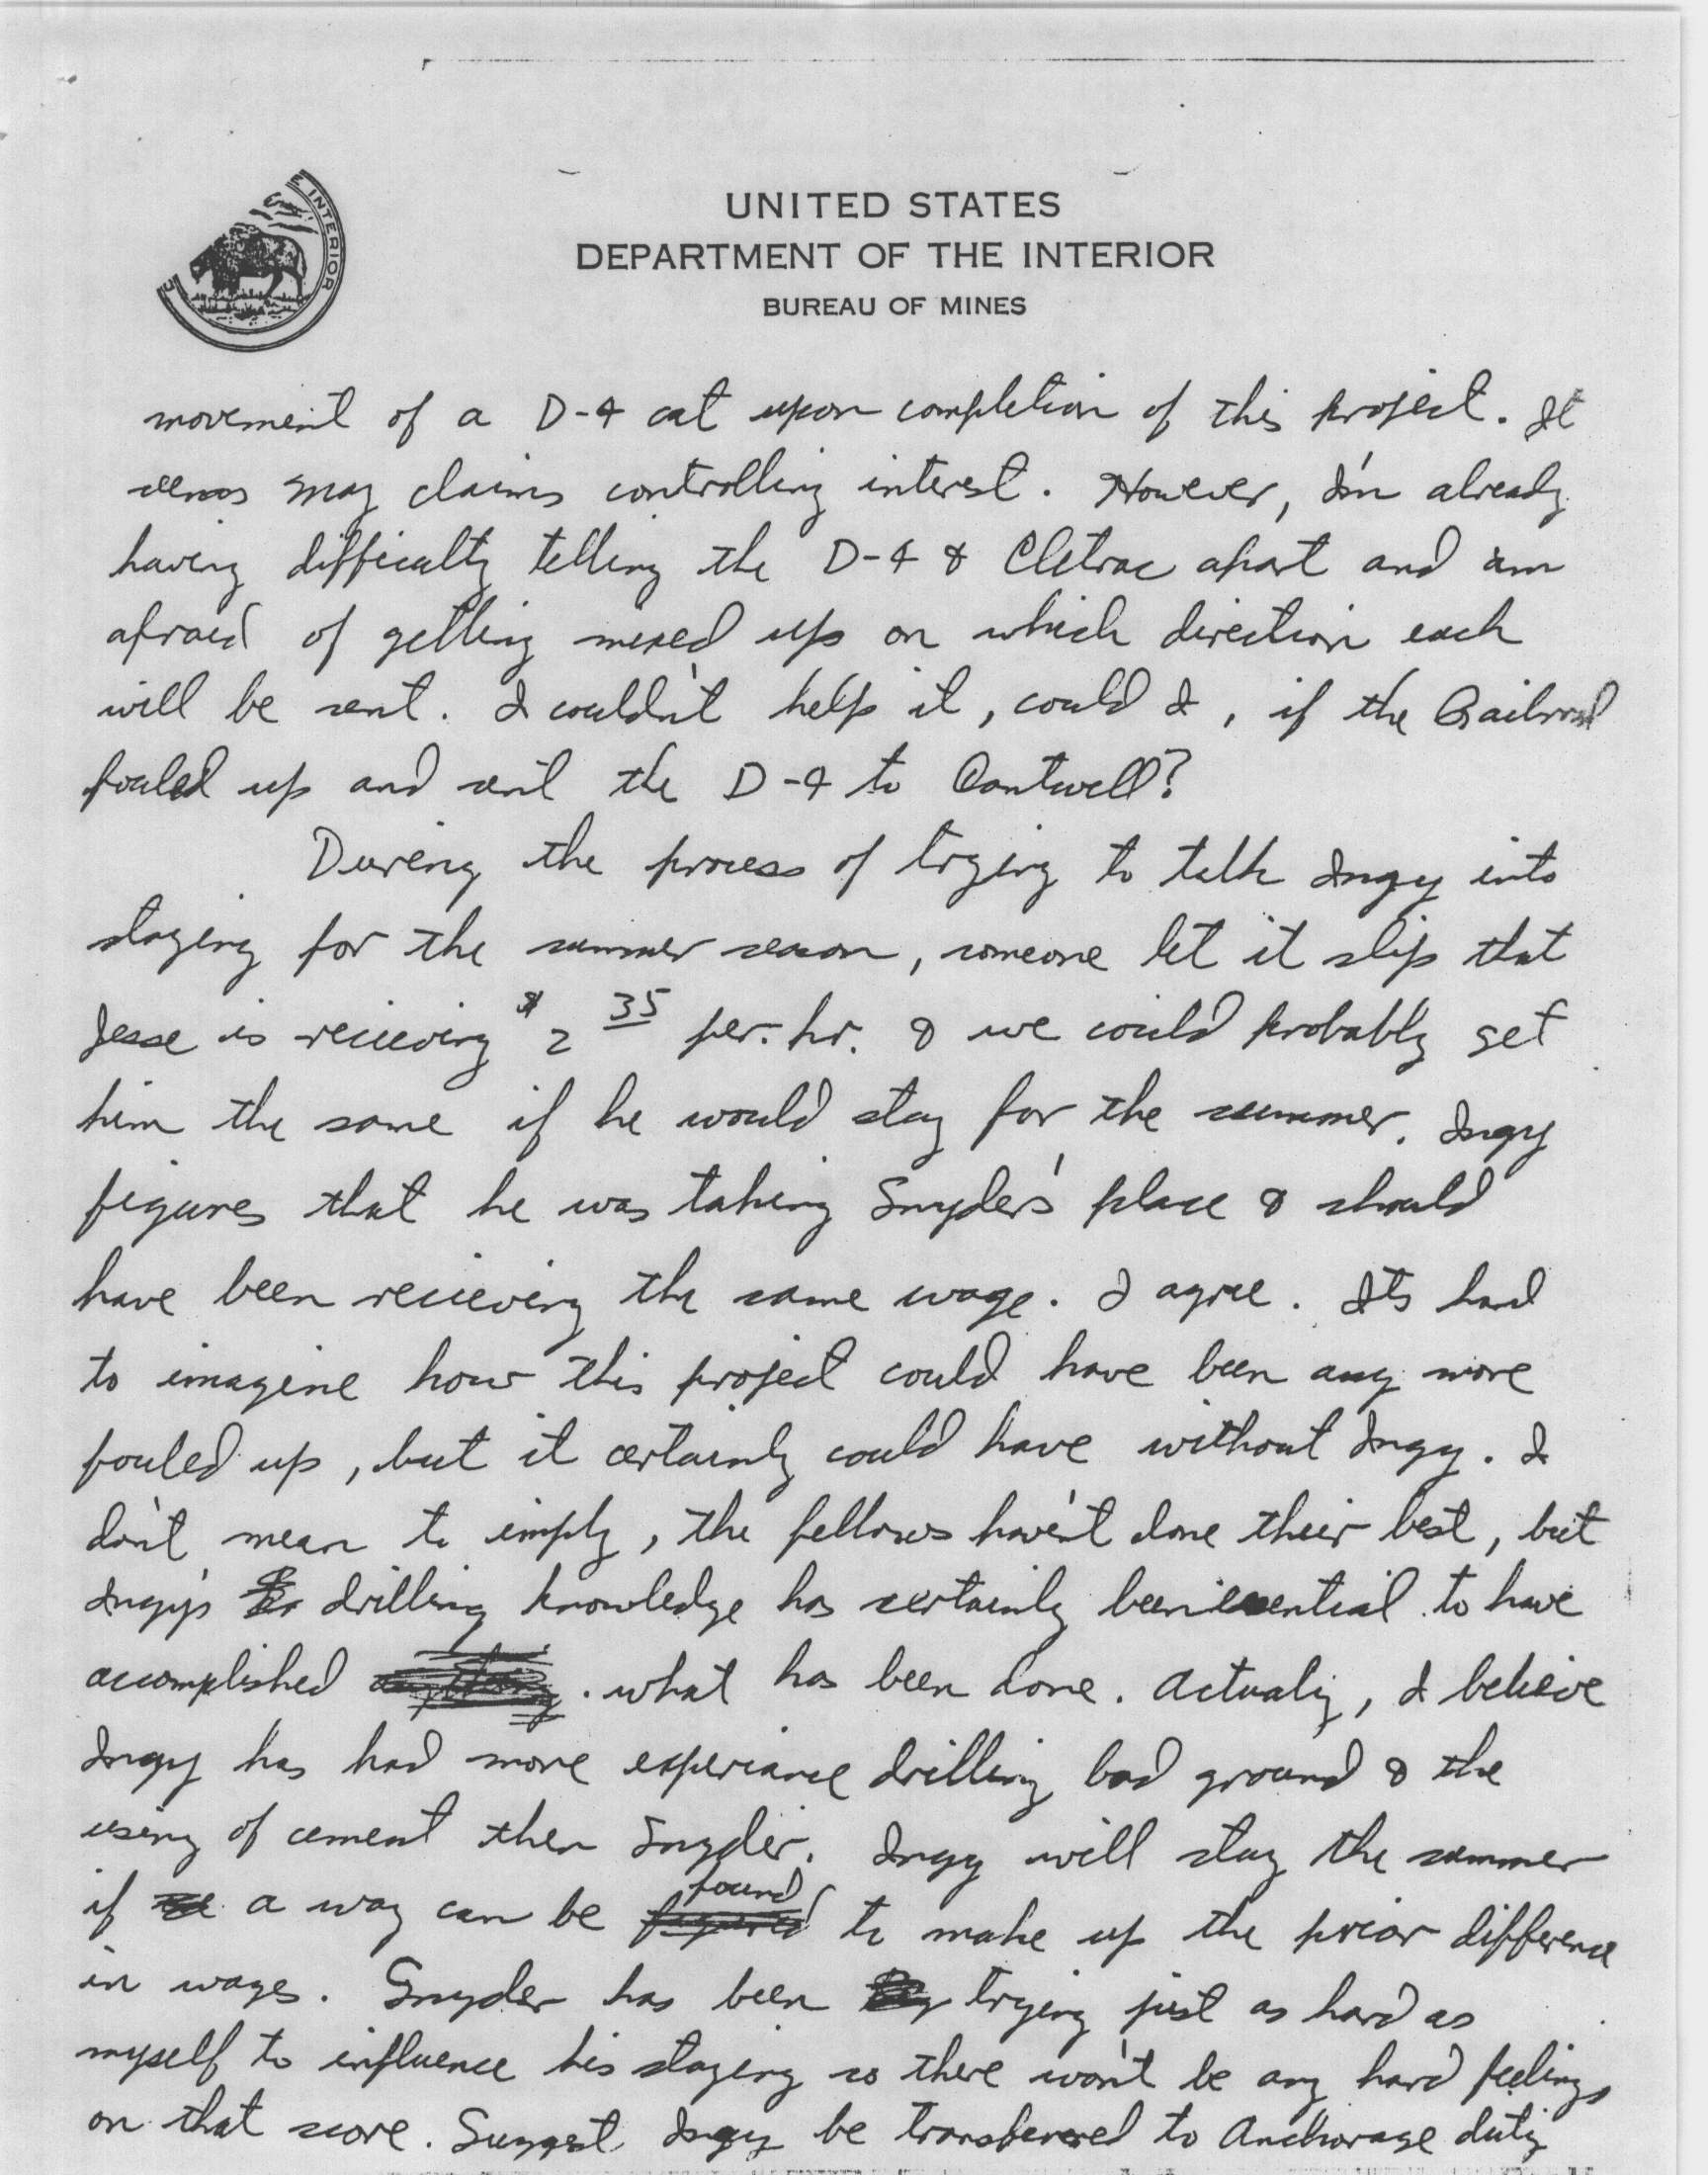 E INTERIOR
UNITED STATES
DEPARTMENT OF THE INTERIOR
BUREAU OF MINES
movement of a D-4 cat upon completion of this project. It
seems may claims controlling interest. However, I'm already
having difficulty telling the D-4 & Cletrac apart and am
afraid of getting mixed up on which direction each
will be sent. I couldn't help it, could I, if the Railroad
fouled up and sent the D-4 to Cantwell?
During the process of trying to talk Ingy into
staying for the summer season, someone let it slip that
Jesse is recieving $2 35 per. hr. & we could probably get
him the same if he would stay for the summer. Ingy
figures that he was taking Snyder's place & should
have been recieving the same wage. I agree. Its hard
to imagine how this project could have been any more
fouled up, but it certainly could have without Ingy. I
don't mean to imply, the fellows have't done their best, but
Ingy's drilling knowledge has certainly been essential to have
accomplished what has been done. Actualy, I believe
Ingy has had more experiance drilling bad ground & the
using of cement then Snyder. Ingy will stay the summer
if a way can be found to make up the prior difference
in wages. Snyder has been trying just as hard as
myself to influence his staying so there won't be any hard feelings
on that score. Suggest Ingy be transfered to Anchorage duty